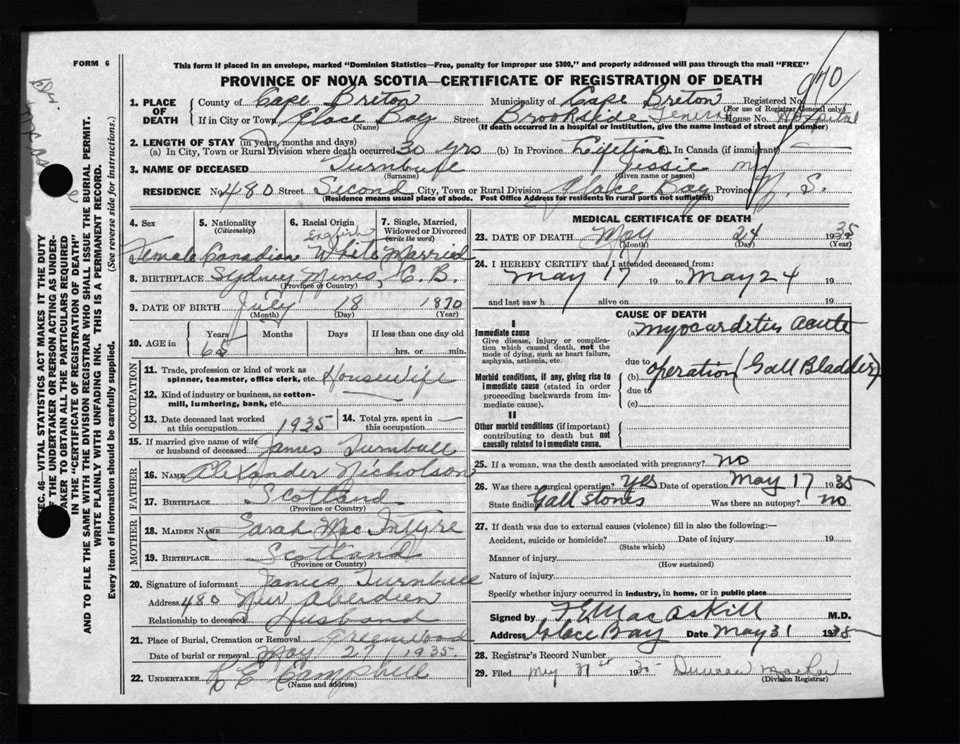 FORM 6
This form if placed in an envelope, marked "Dominion Statistics—Free, penalty for improper use $300," and properly addressed will pass through the mail "FREE"
PROVINCE OF NOVA SCOTIA—CERTIFICATE OF REGISTRATION OF DEATH
1. PLACE OF DEATH County of Cape Breton Municipality of Cape Breton Registered No. 970
(For use of Registrar General only)
If in City or Town, Glace Bay Street Brookside General House No. Hospital
(Name) (If death occurred in a hospital or institution, give the name instead of street and number)
2. LENGTH OF STAY (in years, months and days)
(a) In City, Town or Rural Division where death occurred 30 yrs (b) In Province Lifetime (c) In Canada (if immigrant) —
3. NAME OF DECEASED Turnbull Jessie
(Surname) (Given name or names)
RESIDENCE No. 480 Street Second City, Town or Rural Division Glace Bay Province N. S.
(Residence means usual place of abode. Post Office Address for residents in rural parts not sufficient)
4. Sex Female
5. Nationality (Citizenship) Canadian
6. Racial Origin English White
7. Single, Married, Widowed or Divorced (write the word) Married
8. BIRTHPLACE Sydney Mines, C. B.
(Province or Country)
9. DATE OF BIRTH July 18 1870
(Month) (Day) (Year)
10. AGE in Years 65 Months Days If less than one day old hrs. or min.
OCCUPATION
11. Trade, profession or kind of work as spinner, teamster, office clerk, etc. Housewife
12. Kind of industry or business, as cotton-mill, lumbering, bank, etc.
13. Date deceased last worked at this occupation 1935 14. Total yrs. spent in this occupation —
15. If married give name of wife or husband of deceased James Turnbull
FATHER
16. NAME Alexander Nicholson
17. BIRTHPLACE Scotland
(Province or Country)
MOTHER
18. MAIDEN NAME Sarah MacIntyre
19. BIRTHPLACE Scotland
(Province or Country)
20. Signature of informant James Turnbull
Address 480 New Aberdeen
Relationship to deceased Husband
21. Place of Burial, Cremation or Removal Greenwood
Date of burial or removal May 27, 1935.
22. UNDERTAKER Campbell
(Name and address)
MEDICAL CERTIFICATE OF DEATH
23. DATE OF DEATH May 24 1935
(Month) (Day) (Year)
24. I HEREBY CERTIFY that I attended deceased from:
May 17 19 to May 24 19
and last saw h alive on 19
CAUSE OF DEATH
I
Immediate cause
Give disease, injury or complication which caused death, not the mode of dying, such as heart failure, asphyxia, asthenia, etc.
(a) Myocarditis Acute
due to
Morbid conditions, if any, giving rise to immediate cause (stated in order proceeding backwards from immediate cause).
(b) operation (Gall Bladder)
due to
(c)
II
Other morbid conditions (if important) contributing to death but not causally related to immediate cause.
25. If a woman, was the death associated with pregnancy? no
26. Was there a surgical operation? yes Date of operation May 17 1935
State findings Gall Stones Was there an autopsy? no
27. If death was due to external causes (violence) fill in also the following:—
Accident, suicide or homicide? Date of injury 19
(State which)
Manner of injury
(How sustained)
Nature of injury
Specify whether injury occurred in industry, in home, or in public place
Signed by MacAskill M.D.
Address Glace Bay Date May 31 1935
28. Registrar's Record Number
29. Filed May 31st 1935 Duncan
(Division Registrar)
SEC. 46—VITAL STATISTICS ACT MAKES IT THE DUTY
OF THE UNDERTAKER OR PERSON ACTING AS UNDER-
TAKER TO OBTAIN ALL THE PARTICULARS REQUIRED
IN THE "CERTIFICATE OF REGISTRATION OF DEATH"
AND TO FILE THE SAME WITH THE DIVISION REGISTRAR WHO SHALL ISSUE THE BURIAL PERMIT.
WRITE PLAINLY WITH UNFADING INK. THIS IS A PERMANENT RECORD.
Every item of information should be carefully supplied. (See reverse side for instructions.)